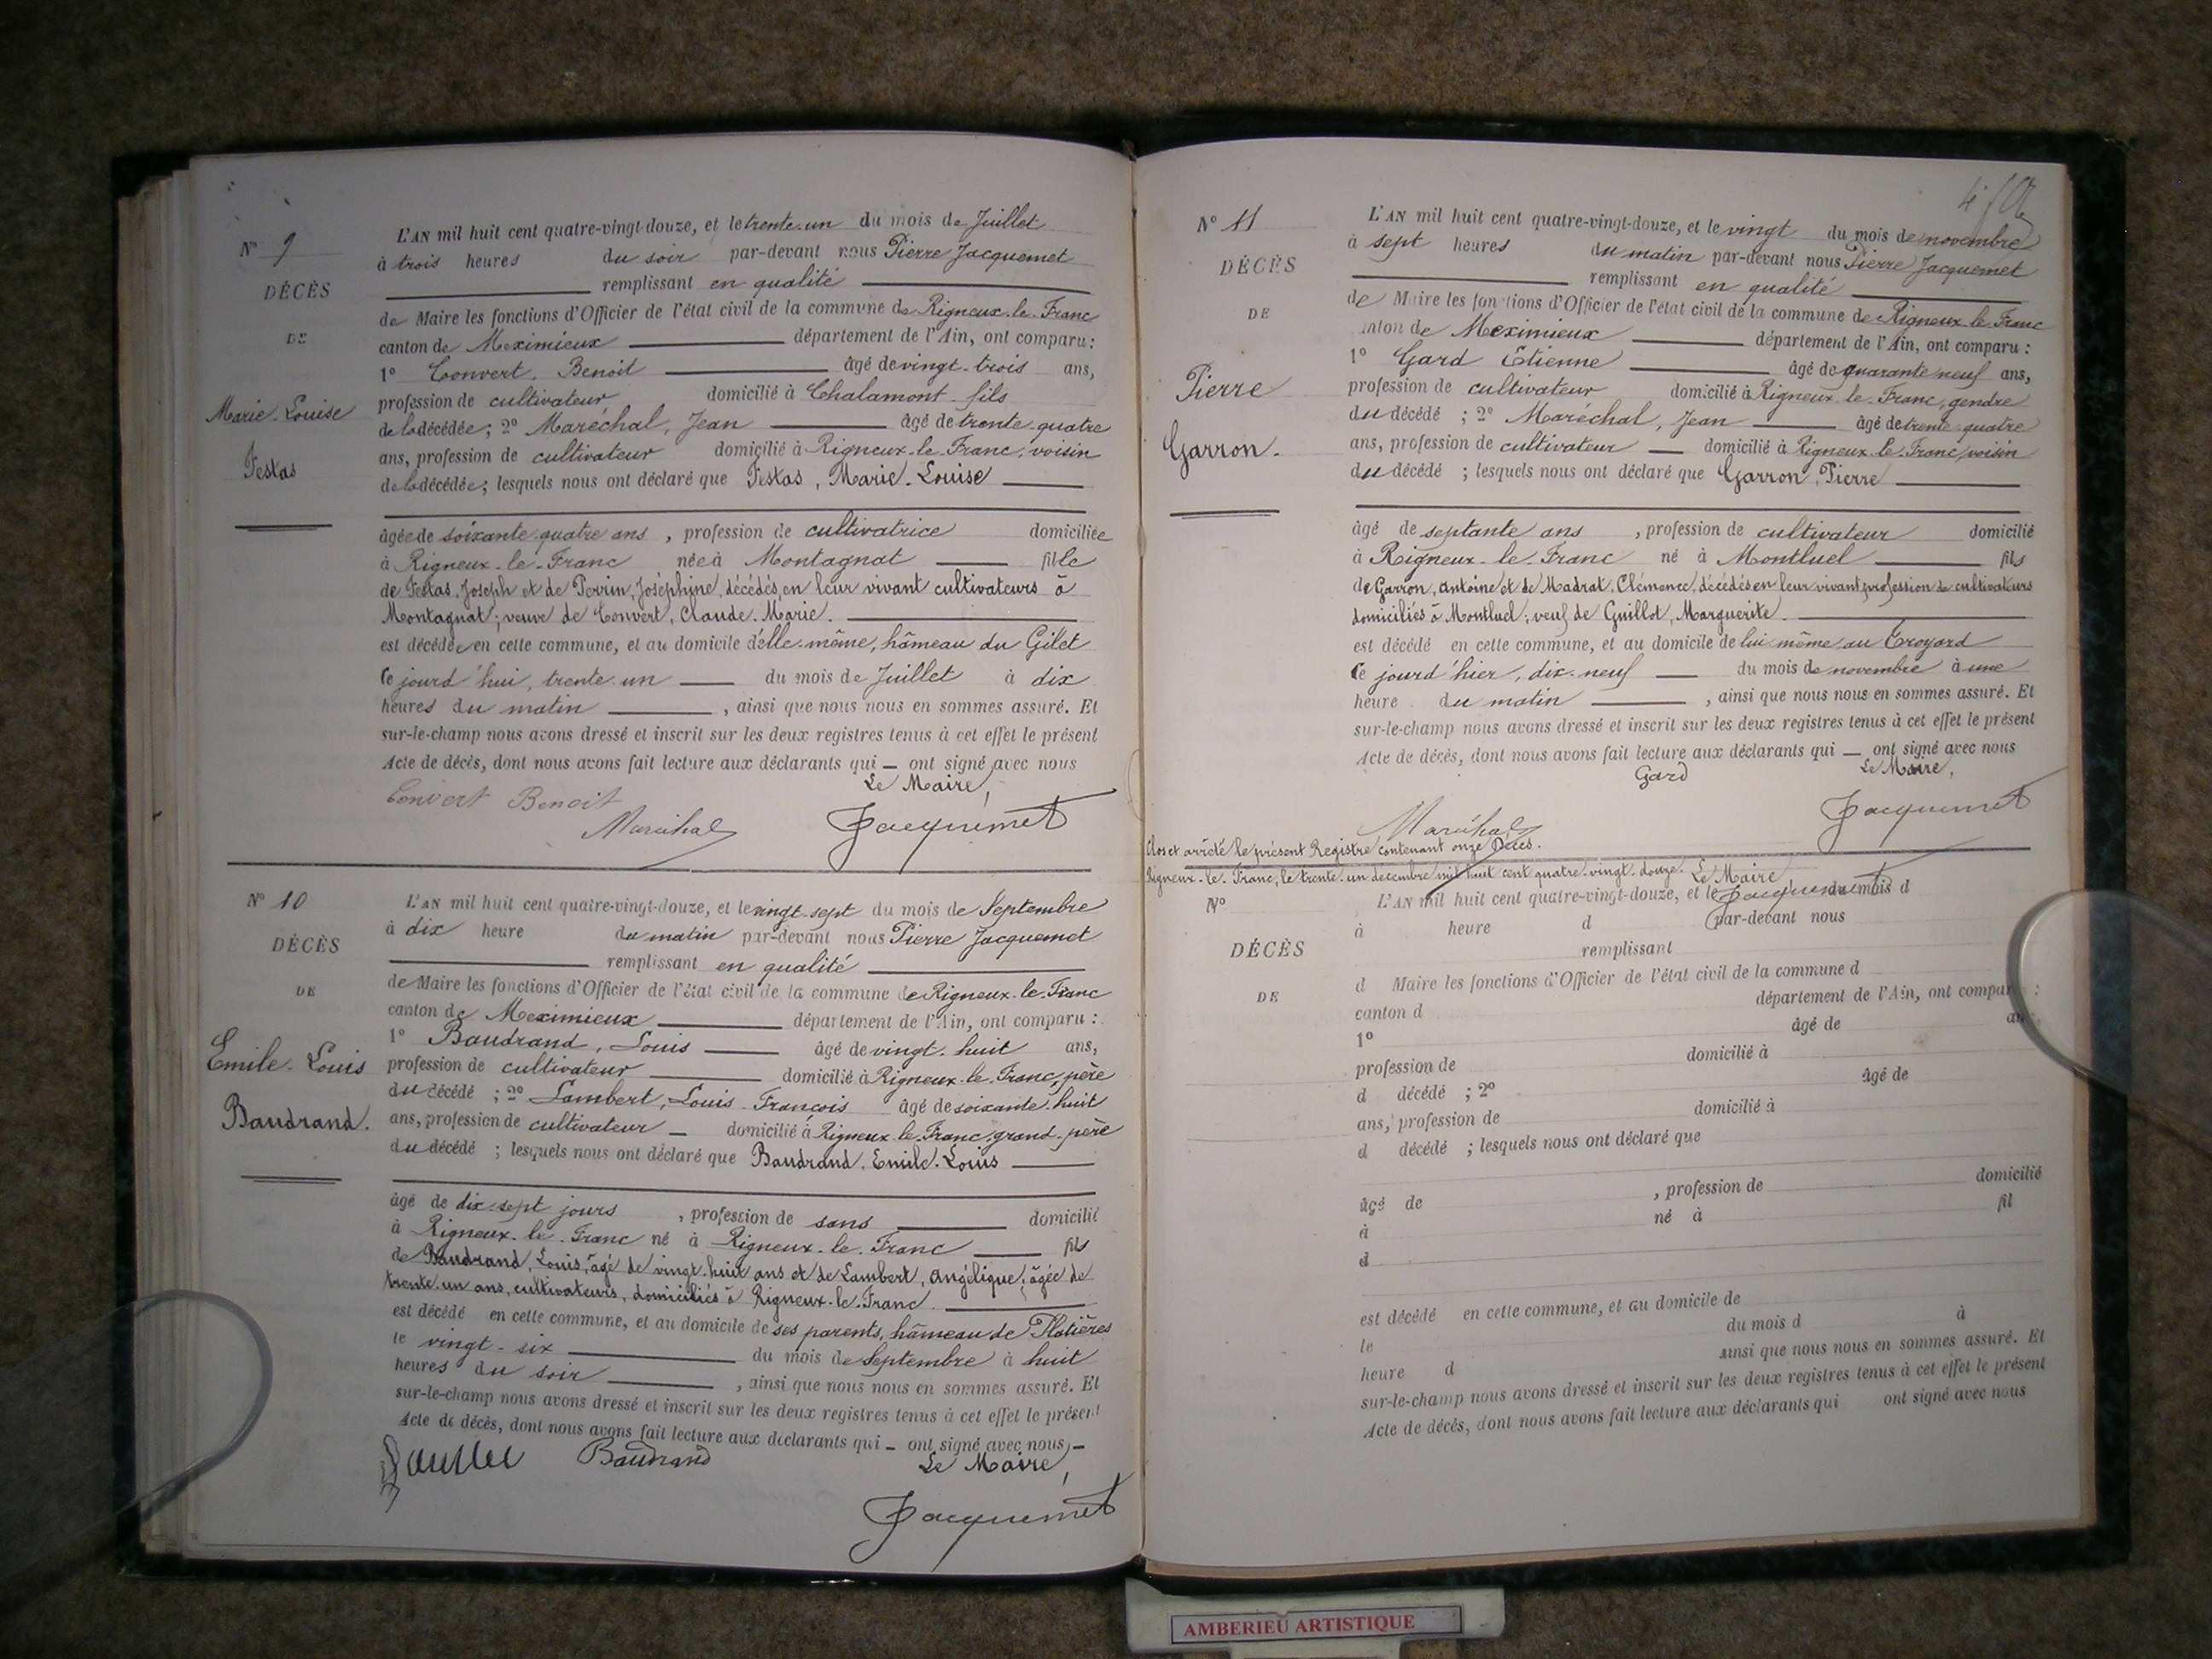 N° 9
DÉCÈS
DE
Marie-Louise
Festas
L'AN mil huit cent quatre-vingt-douze, et le trente-un du mois de Juillet
à trois heures du soir par-devant nous Pierre Jacquemet
remplissant en qualité
de Maire les fonctions d'Officier de l'état civil de la commune de Rigneux-le-Franc
canton de Meximieux département de l'Ain, ont comparu :
1° Convert, Benoit âgé de vingt-trois ans,
profession de cultivateur domicilié à Chalamont fils
de la décédée ; 2° Maréchal, Jean âgé de trente-quatre
ans, profession de cultivateur domicilié à Rigneux-le-Franc, voisin
de la décédée ; lesquels nous ont déclaré que Festas, Marie-Louise
âgée de soixante-quatre ans, profession de cultivatrice domiciliée
à Rigneux-le-Franc née à Montagnat fille
de Festas, Joseph et de Perrin, Joséphine, décédés, en leur vivant cultivateurs à
Montagnat ; veuve de Convert, Claude-Marie.
est décédée en cette commune, et au domicile d'elle-même, hâmeau du Gilet
Ce jourd'hui, trente-un du mois de Juillet à dix
heures du matin, ainsi que nous nous en sommes assuré. Et
sur-le-champ nous avons dressé et inscrit sur les deux registres tenus à cet effet le présent
Acte de décès, dont nous avons fait lecture aux déclarants qui — ont signé avec nous
Le Maire,
Convert Benoit
Maréchal Jacquemet
N° 10
DÉCÈS
DE
Emile-Louis
Baudrand.
L'AN mil huit cent quatre-vingt-douze, et le vingt-sept du mois de Septembre
à dix heure du matin par-devant nous Pierre Jacquemet
remplissant en qualité
de Maire les fonctions d'Officier de l'état civil de la commune de Rigneux-le-Franc
canton de Meximieux département de l'Ain, ont comparu :
1° Baudrand, Louis âgé de vingt-huit ans,
profession de cultivateur domicilié à Rigneux-le-Franc, père
du décédé ; 2° Lambert, Louis-François âgé de soixante-huit
ans, profession de cultivateur — domicilié à Rigneux-le-Franc, grand-père
du décédé ; lesquels nous ont déclaré que Baudrand, Emile-Louis
âgé de dix-sept jours, profession de sans domicilié
à Rigneux-le-Franc né à Rigneux-le-Franc fils
de Baudrand, Louis, âgé de vingt-huit ans et de Lambert, Angélique, âgée de
trente-un ans, cultivateurs, domiciliés à Rigneux-le-Franc.
est décédé en cette commune, et au domicile de ses parents, hâmeau de Platières
le vingt-six du mois de Septembre à huit
heures du soir, ainsi que nous nous en sommes assuré. Et
sur-le-champ nous avons dressé et inscrit sur les deux registres tenus à cet effet le présent
Acte de décès, dont nous avons fait lecture aux déclarants qui — ont signé avec nous, —
Baudrand Le Maire,
Jacquemet
N° 11
DÉCÈS
DE
Pierre
Garron.
L'AN mil huit cent quatre-vingt-douze, et le vingt du mois de novembre
à sept heures du matin par-devant nous Pierre Jacquemet
remplissant en qualité
de Maire les fonctions d'Officier de l'état civil de la commune de Rigneux-le-Franc
canton de Meximieux département de l'Ain, ont comparu :
1° Gard Etienne âgé de quarante-neuf ans,
profession de cultivateur domicilié à Rigneux-le-Franc, gendre
du décédé ; 2° Maréchal, Jean âgé de trente-quatre
ans, profession de cultivateur — domicilié à Rigneux-le-Franc, voisin
du décédé ; lesquels nous ont déclaré que Garron, Pierre
âgé de septante ans, profession de cultivateur domicilié
à Rigneux-le-Franc né à Montluel fils
de Garron, Antoine et de Madrat, Clémence, décédés en leur vivant profession de cultivateurs
domiciliés à Montluel, veuf de Guillot, Marguerite.
est décédé en cette commune, et au domicile de lui-même, au Croyard
Ce jourd'hier, dix-neuf du mois de novembre à une
heure du matin, ainsi que nous nous en sommes assuré. Et
sur-le-champ nous avons dressé et inscrit sur les deux registres tenus à cet effet le présent
Acte de décès, dont nous avons fait lecture aux déclarants qui — ont signé avec nous
Gard Le Maire,
Maréchal Jacquemet
Clos et arrêté le présent Registre contenant onze Décès.
Rigneux-le-Franc, le trente-un décembre mil huit cent quatre-vingt-douze. Le Maire,
Jacquemet
N°
DÉCÈS
DE
L'AN mil huit cent quatre-vingt-douze, et le du mois d
à heure d par-devant nous
remplissant
d Maire les fonctions d'Officier de l'état civil de la commune d
canton d département de l'Ain, ont comparu :
1° âgé de an
profession de domicilié à
d décédé ; 2° âgé de
ans, profession de domicilié à
d décédé ; lesquels nous ont déclaré que
âgé de , profession de domicilié
à né à fil
d
est décédé en cette commune, et au domicile de
le du mois d à
heure d ainsi que nous nous en sommes assuré. Et
sur-le-champ nous avons dressé et inscrit sur les deux registres tenus à cet effet le présent
Acte de décès, dont nous avons fait lecture aux déclarants qui ont signé avec nous
AMBERIEU ARTISTIQUE